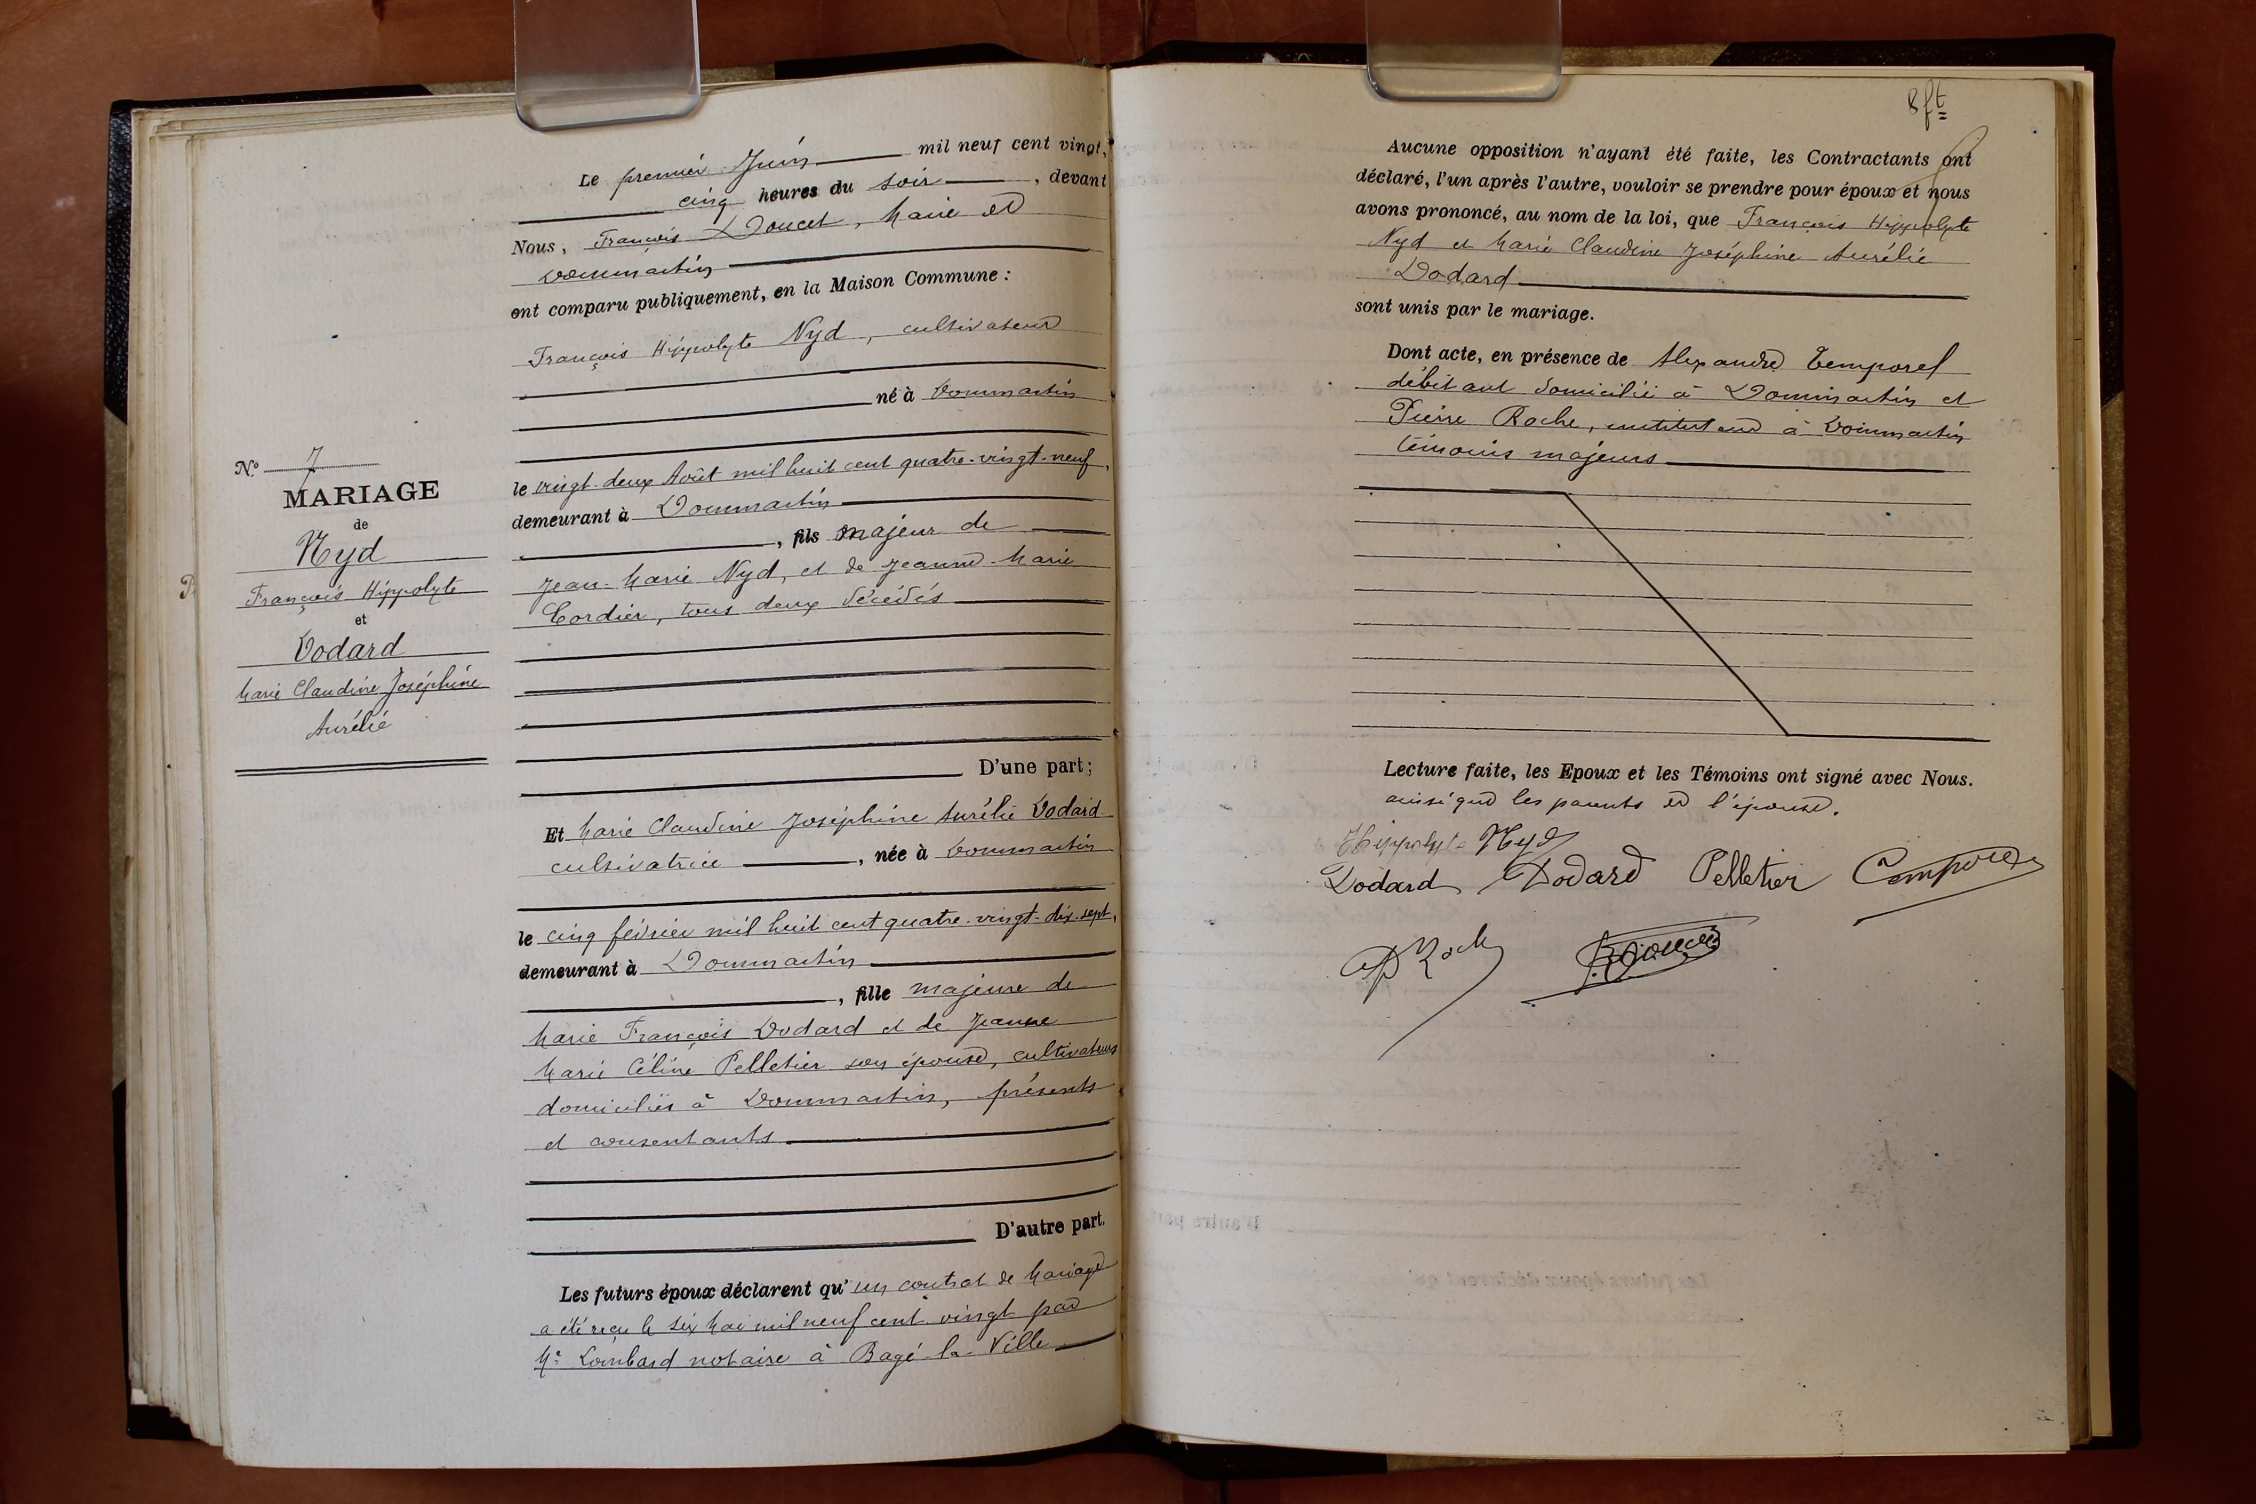 N° 7
MARIAGE
de
Nyd
François Hippolyte
et
Dodard
Marie Claudine Joséphine
Aurélie
Le premier Juin mil neuf cent vingt,
cinq heures du soir, devant
Nous, François Doucet, Maire de
Dommartin
ont comparu publiquement, en la Maison Commune :
François Hippolyte Nyd, cultivateur
né à Dommartin
le vingt-deux Août mil huit cent quatre-vingt-neuf,
demeurant à Dommartin
, fils majeur de
Jean-Marie Nyd, et de Jeanne-Marie
Cordier, tous deux décédés
D'une part ;
Et Marie Claudine Joséphine Aurélie Dodard
cultivatrice, née à Dommartin
le cinq février mil huit cent quatre-vingt-dix-sept,
demeurant à Dommartin
, fille majeure de
Marie François Dodard et de Jeanne
Marie Céline Pelletier son épouse, cultivateurs
domiciliés à Dommartin, présents
et consentants
D'autre part.
Les futurs époux déclarent qu'un contrat de Mariage
a été reçu le six Mai mil neuf cent vingt par
Me Lombard notaire à Bagé-la-Ville
8 ft
Aucune opposition n'ayant été faite, les Contractants ont
déclaré, l'un après l'autre, vouloir se prendre pour époux et nous
avons prononcé, au nom de la loi, que François Hippolyte
Nyd et Marie Claudine Joséphine Aurélie
Dodard
sont unis par le mariage.
Dont acte, en présence de Alexandre Temporel
débitant domicilié à Dommartin et
Pierre Roche, instituteur à Dommartin
témoins majeurs
Lecture faite, les Epoux et les Témoins ont signé avec Nous.
ainsi que les parents de l'épouse.
Hippolyte Nyd
Dodard Dodard Pelletier Temporel
P Roche Doucet